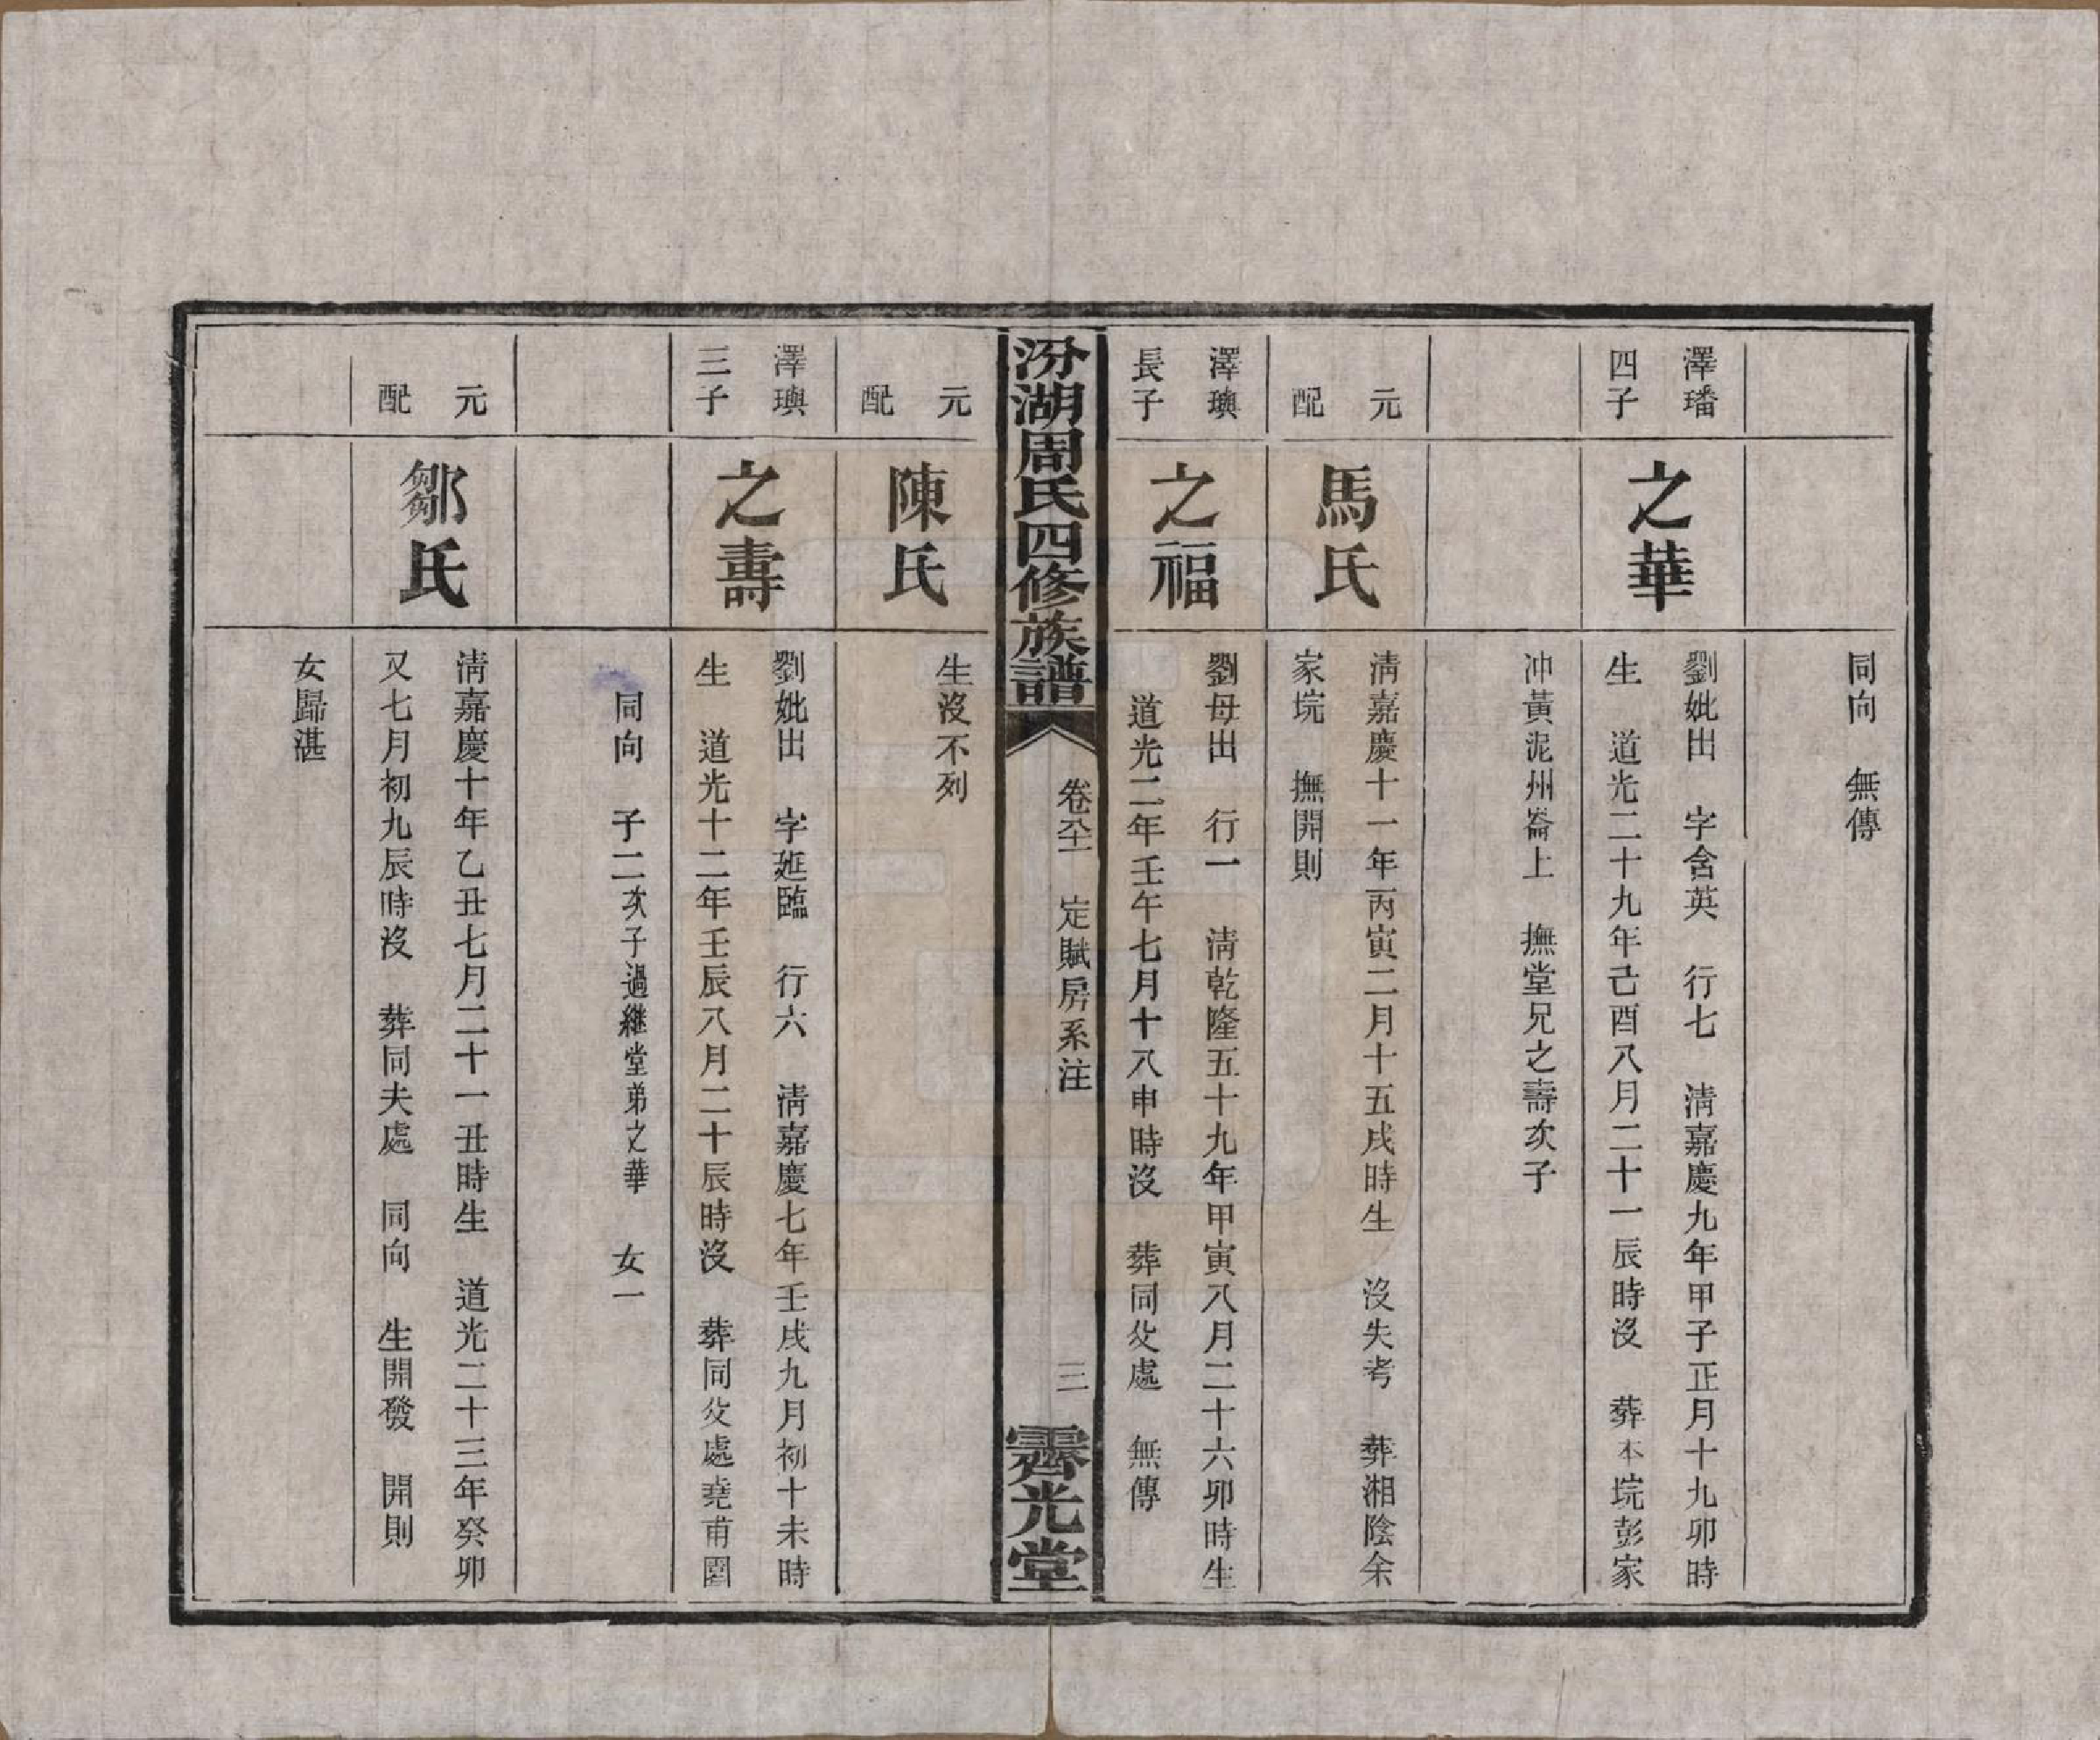 同向　無傳
澤璠
四子
之華
劉妣出　字含英　行七　清嘉慶九年甲子正月十九卯時
生　道光二十九年己酉八月二十一辰時沒　葬本垸彭家
冲黃泥州崙上　撫堂兄之壽次子
元
配
馬氏
清嘉慶十一年丙寅二月十五戌時生　沒失考　葬湘陰余
家垸　撫開則
澤璵
長子
之福
劉母出　行一　清乾隆五十九年甲寅八月二十六卯時生
道光二年壬午七月十八申時沒　葬同父處　無傳
汾湖周氏四修族譜
卷六十一　定賦房系注
三
霽光堂
元
配
陳氏
生沒不列
澤璵
三子
之壽
劉妣出　字延臨　行六　清嘉慶七年壬戌九月初十未時
生　道光十二年壬辰八月二十辰時沒　葬同父處堯甫園
同向　子二次子過継堂弟之華　女一
元
配
鄒氏
清嘉慶十年乙丑七月二十一丑時生　道光二十三年癸卯
又七月初九辰時沒　葬同夫處　同向　生開發　開則
女歸湛